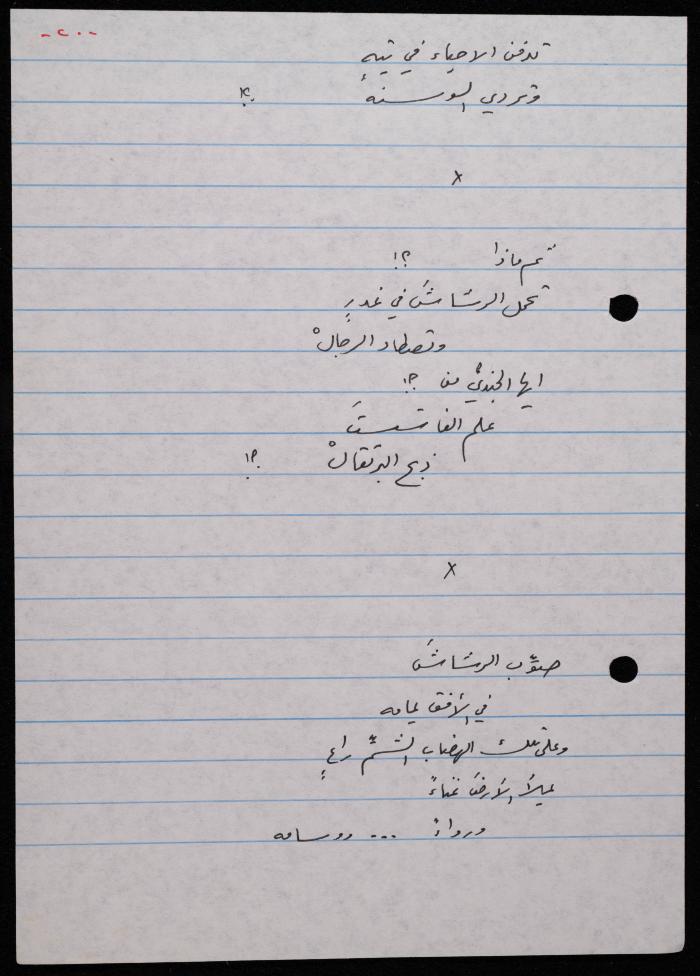 -٢٠-
تدفن الاحياء في تيهٍ
وتردي السوسنهْ ؟!
x
ثم ماذا ؟!
تحمل الرشاشَ في غدرٍ
وتصطاد الرجالْ
ايها الجنديُّ من ؟!
علم الفاشستَ
ذبح البرتقالْ ؟!
x
صوِّب الرشاشَ
في الأفق يمامه
وعلى تلك الهضاب الشمِّ راعٍ
يملأ الأرضَ غناءً
ورواءً ... ووسامه